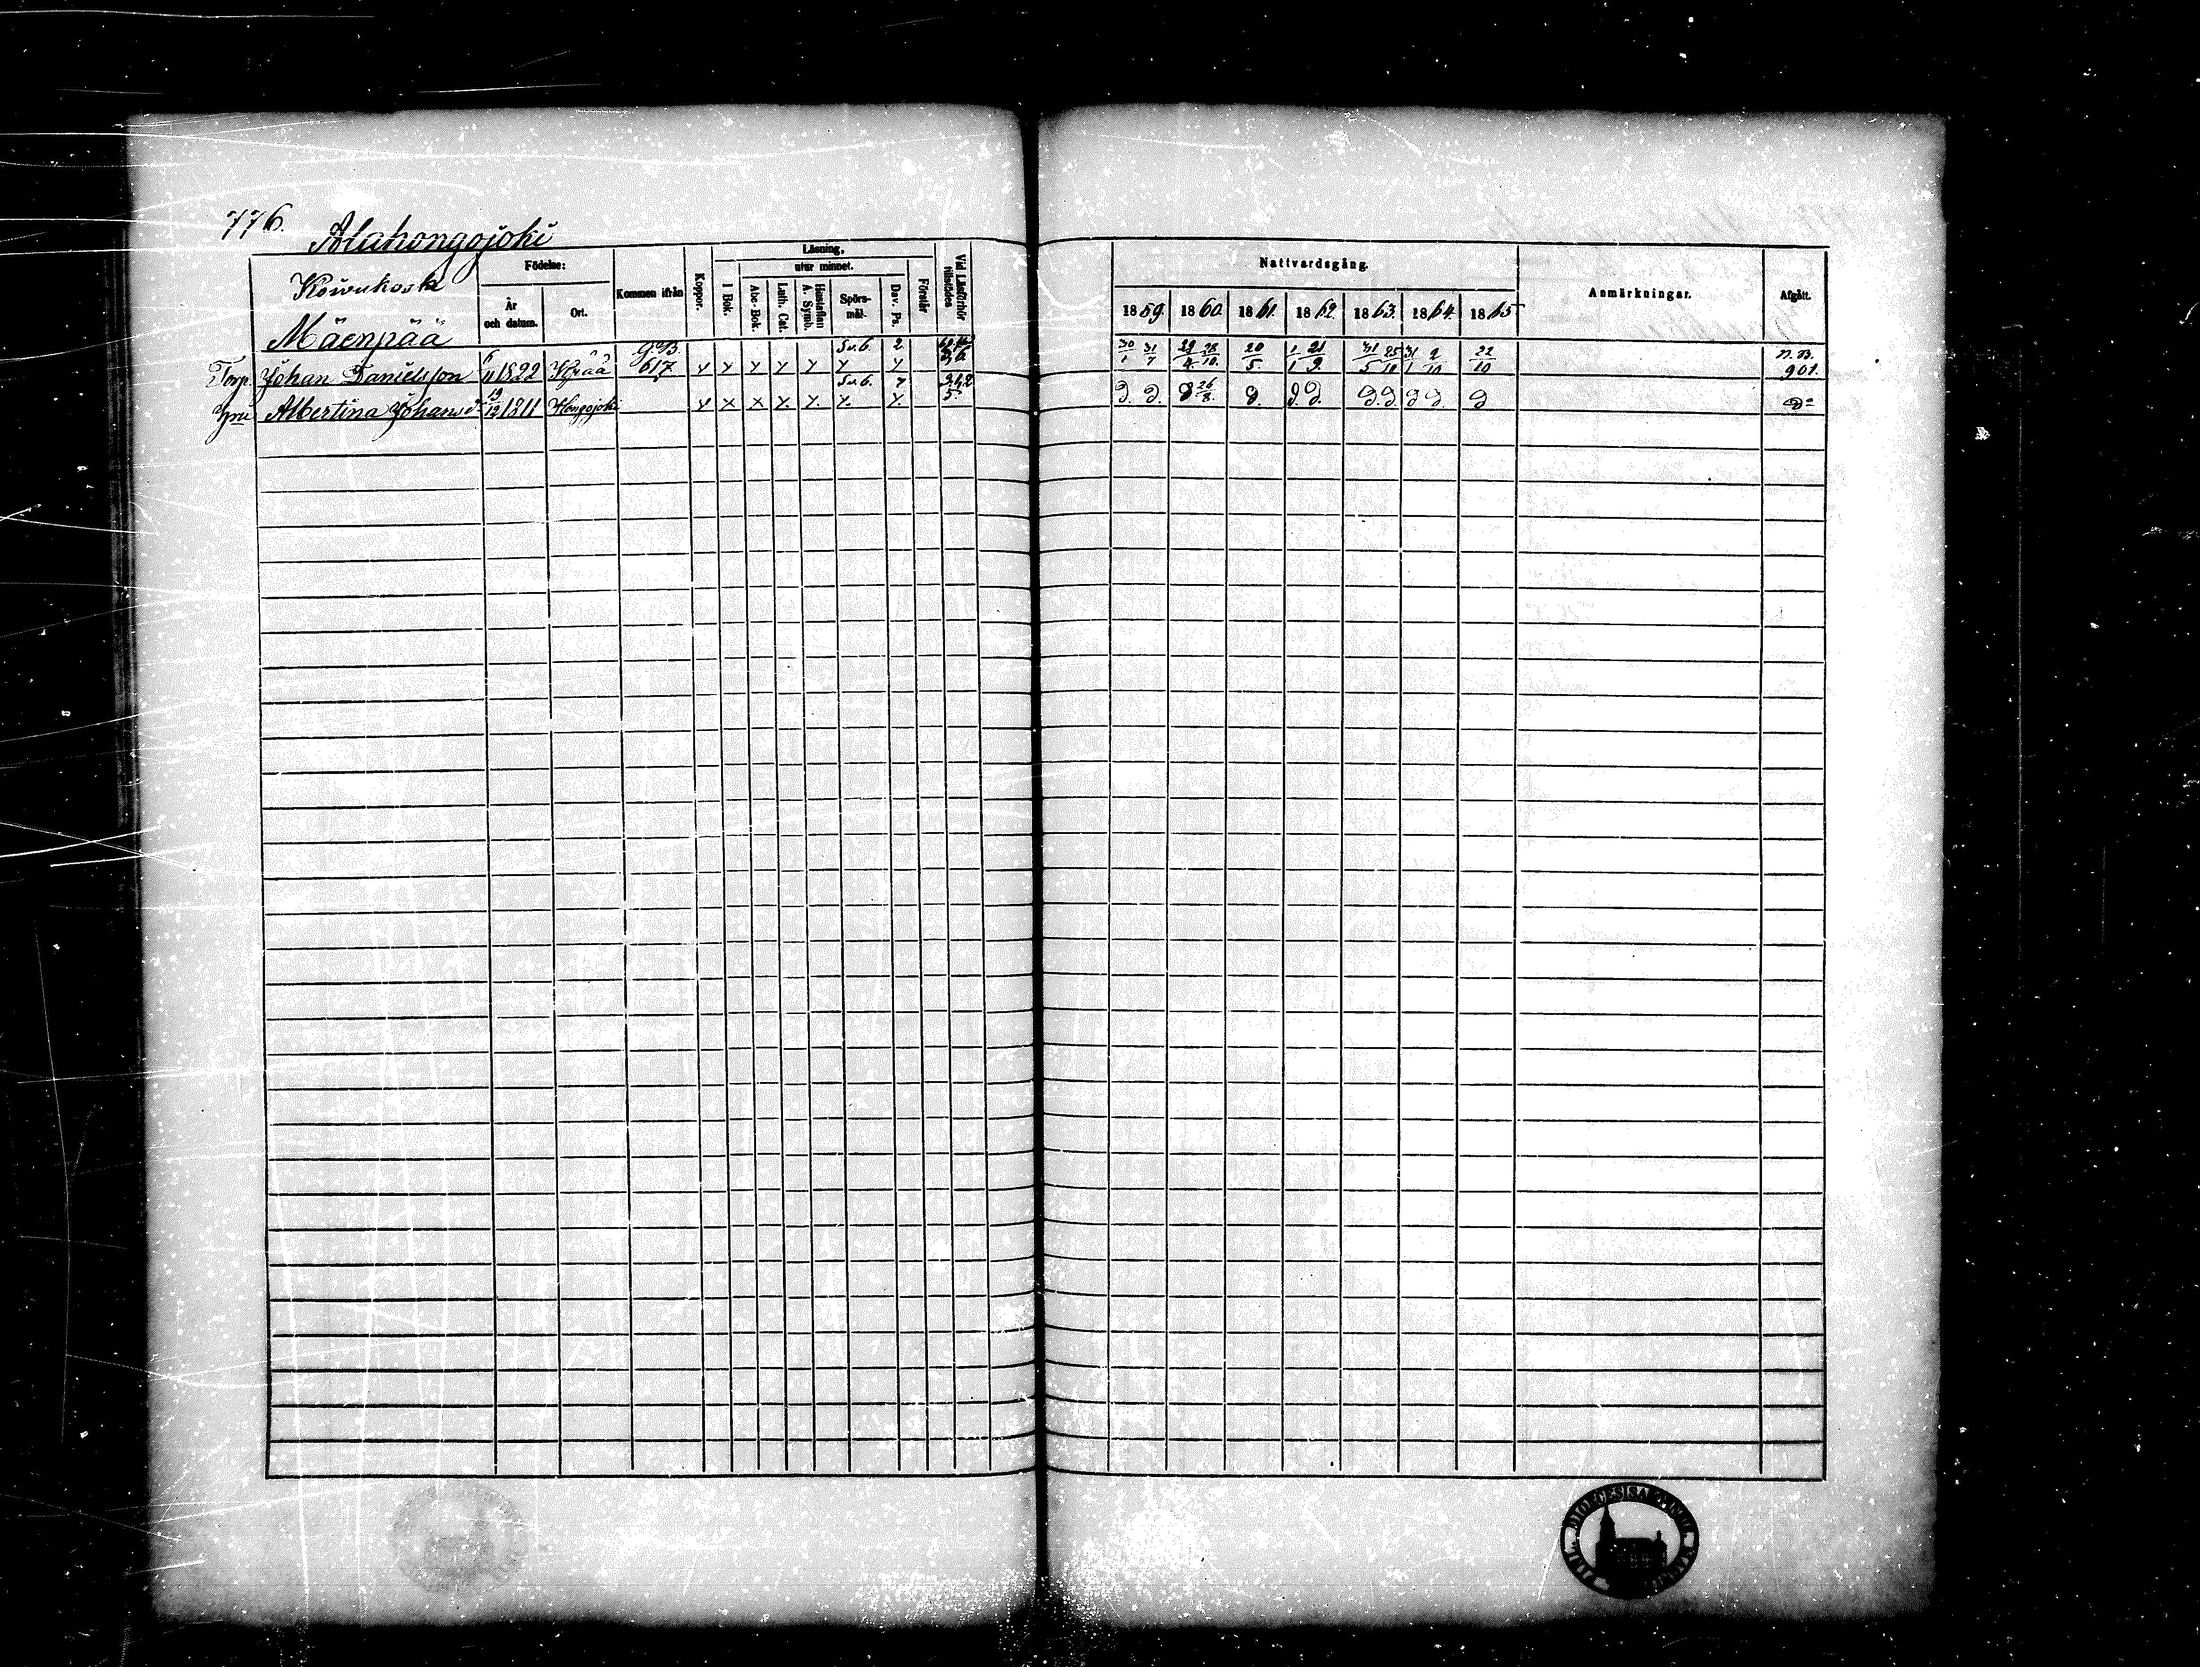 776.
Alahongojoki
Koiwukoski
Mäenpää
Födelse:
År och datum.
Ort.
Kommen ifrån
Koppor.
Läsning,
utur minnet.
I Bok.
Abc-Bok.
Luth. Cat.
Hustaflan A. Symb.
Spörs-mål.
Dav. Ps.
Förstår
Vid Läsförhör tillstädes
Nattvardsgång.
1859. 1860. 1861. 1862. 1863. 1864. 1865
Anmärkningar.
Afgått.
G.B. Sv.6. 2. 30/1 31/7 29/4 28/10. 20/5 1/1 21/9. 31/5 25/10 31/1 2/10 22/10 n.B.
Torp. Johan Danielsson 6/11 1822 617 y y y y y y y 901.
Sv.6. y
Hu Albertina Johansd: 19/12 1811 Hongojoki y x x y. y. y. y. D. D. D 26/8 D. D. D. D. D. D D. D Do